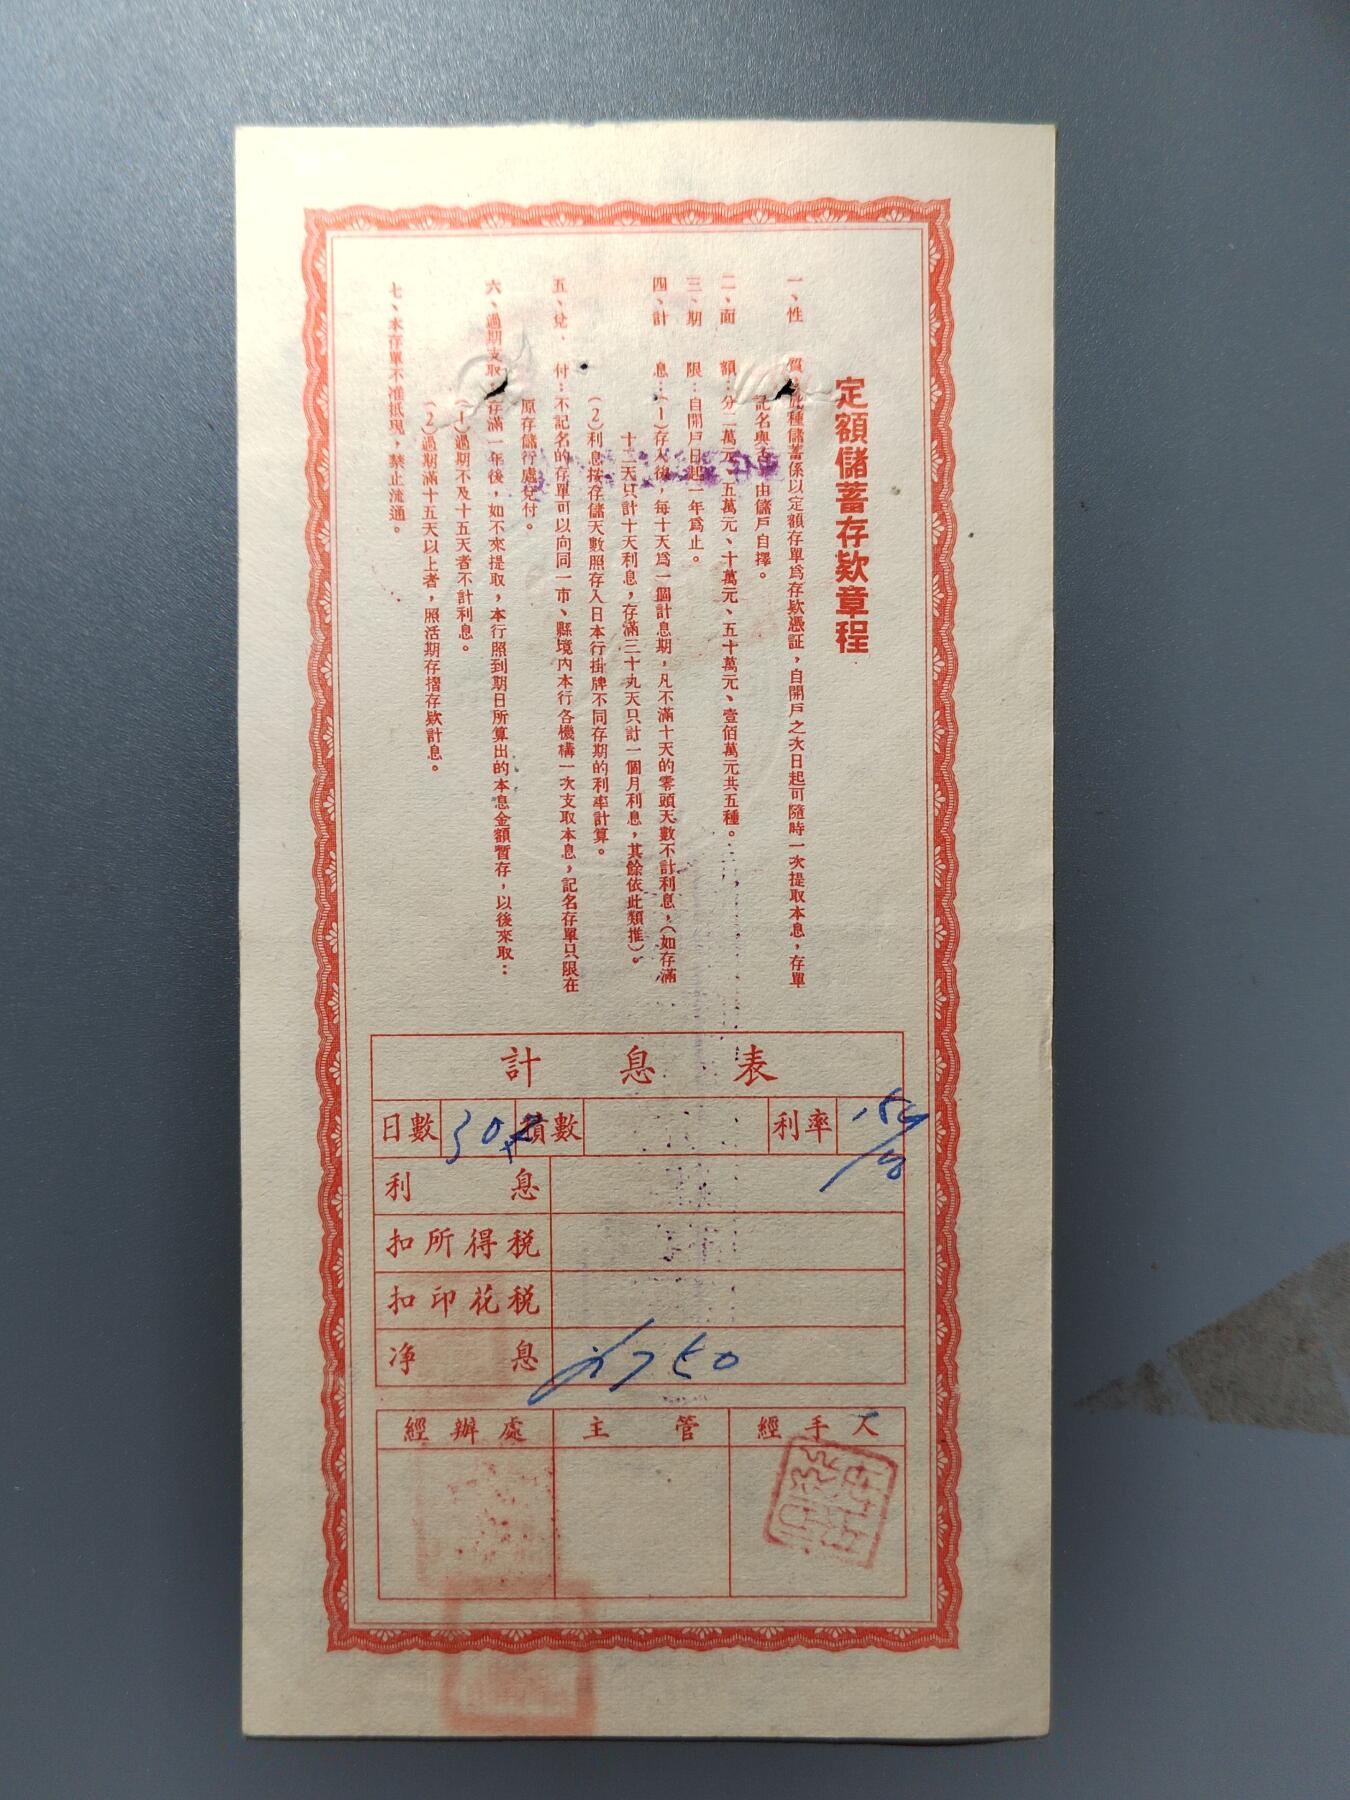 定額儲蓄存欵章程
一、性 質：此種儲蓄係以定額存單爲存欵憑証，自開戶之次日起可隨時一次提取本息，存單
記名與否，由儲戶自擇。
二、面 額：分二萬元、五萬元、十萬元、五十萬元、壹佰萬元共五種。
三、期 限：自開戶日起一年爲止。
四、計 息：（1）存入後，每十天爲一個計息期，凡不滿十天的零頭天數不計利息，（如存滿
十二天只計十天利息，存滿三十九天只計一個月利息，其餘依此類推）。
（2）利息按存儲天數照存入日本行掛牌不同存期的利率計算。
五、兌 付：不記名的存單可以向同一市、縣境內本行各機構一次支取本息，記名存單只限在
原存儲行處兌付。
六、過期支取：存滿一年後，如不來提取，本行照到期日所算出的本息金額暫存，以後來取：
（1）過期不及十五天者不計利息。
（2）過期滿十五天以上者，照活期存摺存欵計息。
七、本存單不准抵現，禁止流通。
計息表
日數 30天 積數 利率
利息
扣所得税
扣印花税
净息
經辦處 主管 經手人